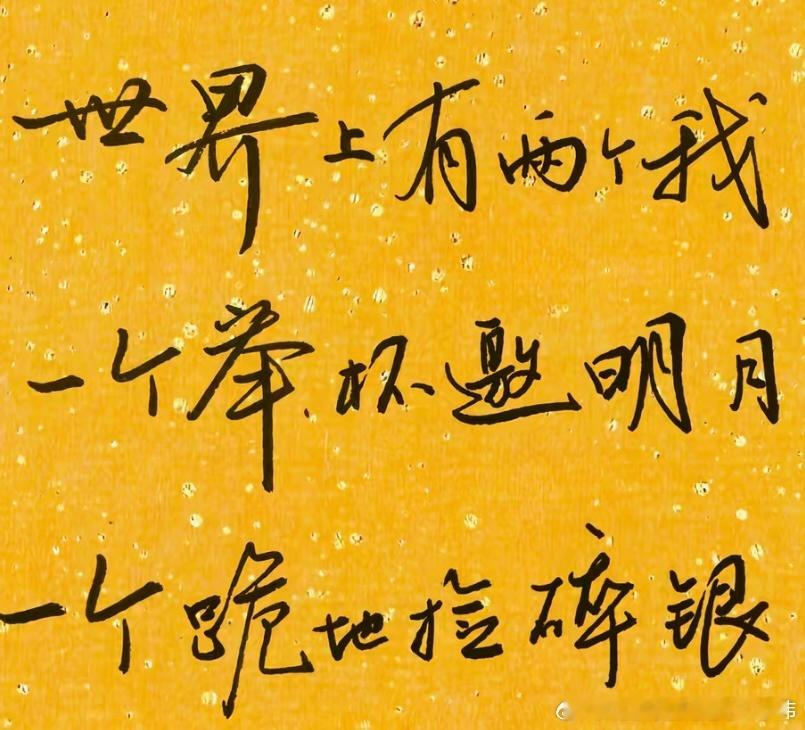 世界上有两个我
一个举杯邀明月
一个跪地捡碎银